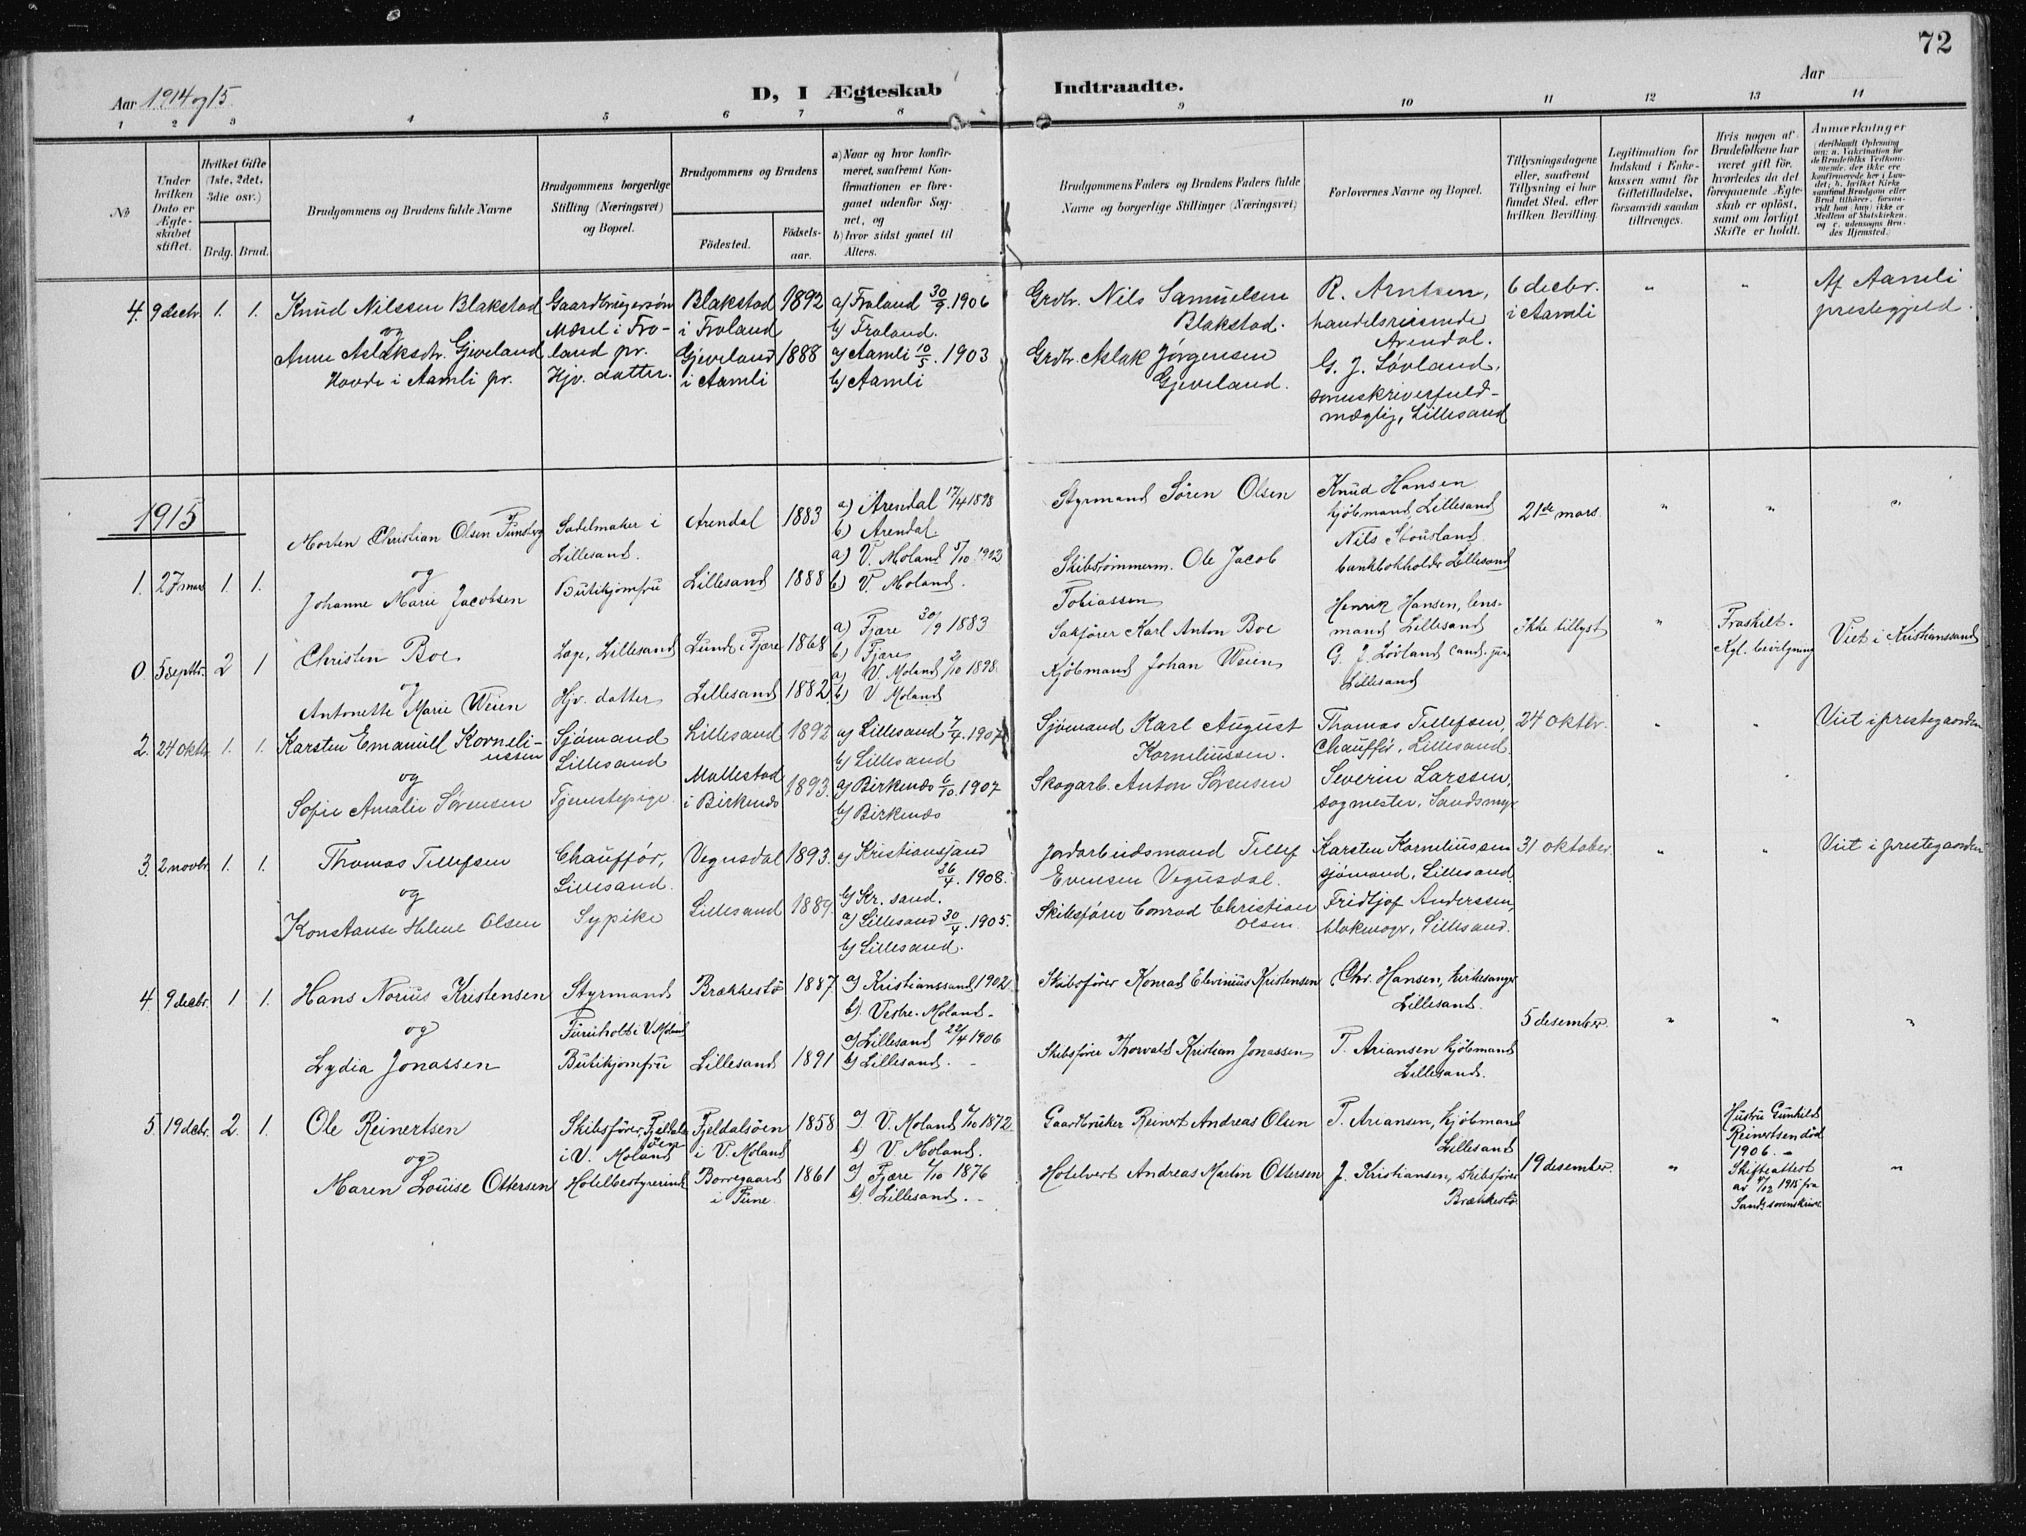 72
Aar 1914 og 15.
D, I Ægteskab Indtraadte.
Aar
1 2 3 4 5 6 7 8 9 10 11 12 13 14
No
Under
hvilken
Dato er
Ægte-
skabet
stiftet.
Hvilket Gifte
(1ste, 2det,
3die osv.)
Brdg. Brud.
Brudgommens og Brudens fulde Navne
Brudgommens borgerlige
Stilling (Næringsvei)
og Bopæl.
Brudgommens og Brudens
Fødested.
Fødsels-
aar.
a) Naar og hvor konfir-
meret, saafremt Kon-
firmationen er fore-
gaaet udenfor Sog-
net, og
b) hvor sidst gaaet til
Alters.
Brudgommens Faders og Brudens Faders fulde
Navne og borgerlige Stillinger (Næringsvei)
Forlovernes Navne og Bopæl.
Tillysningsdagene
eller, saafremt
Tillysning ei har
fundet Sted, efter
hvilken Bevilling.
Legitimation for
Indskud i Enke-
kassen samt for
Giftetilladelse,
forsaavidt saadan
tiltrænges.
Hvis nogen af
Brudefolkene har
været gift før,
hvorledes da det
foregaaende Ægte-
skab er opløst,
samt om lovligt
Skifte er holdt.
Anmærkninger
(deriblandt Oplysning
om: a. Vakcination for
de Brudefolks Vedkom-
mende, der ikke ere
konfirmerede her i Lan-
det; b. hvilket Kirke
samfund Brudgom eller
Brud tilhører, forsaa-
vidt han (hun) ikke er
Medlem af Statskirken,
og c. udensogns Bru-
des Hjemsted.)
4. 9 decbr. 1. 1. Knud Nilssen Blakstad
og
Anne Aslaksdtr. Gjeveland
Hovde i Aamli pr.
Gaardbrugersøn
Mæsel i Fro-
land pr.
Hjv. datter.
Blakstad
i Froland
Gjeveland
i Aamli
1892
1888
a) Froland 30/9. 1906
b) Froland.
a) Aamli 10/5. 1903
b) Aamli
Grdbr. Nils Samuelsen
Blakstad.
Grdbr. Aslak Jørgensen
Gjeveland.
R. Arntsen,
handelsreisende
Arendal.
G. J. Løvland,
sorenskriverfuld-
mægtig, Lillesand
6 decbr.
i Aamli
" "
Af Aamli
prestegjeld.
1915
1. 27 mars 1. 1. Morten Christian Olsen
og
Johanne Marie Jacobsen
Sadelmaker i
Lillesand.
Butikjomfru
Arendal
Lillesand
1883
1888
a) Arendal 17/4 1898
b) Arendal.
a) V. Moland 5/10 1902
b) V. Moland.
Styrmand Søren Olsen
Skibstømmerm. Ole Jacob
Tobiassen
Knud Hansen
kjøbmand, Lillesand
Nils Stousland
bankbokholder Lillesand
21de mars.
" " "
0 5 septbr. 2 1 Christen Boe
og
Antonette Marie Weien
Læge, Lillesand
Hjv. datter
Lund i Fjære
Lillesand
1868
1882
a) Fjære 30/9 1883
b) Fjære
a) V. Moland 2/10 1898.
b) V Moland
Sakfører Karl Anton Boe
Kjøbmand Johan Weien
Henrik Hansen, lens-
mand Lillesand
G. J. Løvland cand. jur.
Lillesand
ikke tillyst
"
Fraskilt.
Kgl. bevilgning
Viet i Kristianssand
2. 24 oktbr. 1. 1. Karsten Emanuell Korneli-
ussen
og
Sofie Amalie Sørensen
Sjømand
Lillesand
Tjenestepige
Lillesand
Mollestad
i Birkenes
1892
1893.
a) Lillesand 7/4. 1907
b) Lillesand
a) Birkenes 6/10. 1907
b) Birkenes
Sjømand Karl August
Korneliussen.
Skogarb. Anton Sørensen
Thomas Tellefsen,
Chauffør, Lillesand
Severin Larssen,
sagmester, Sandsmyr
24 oktbr.
" "
Viet i prestegaarden
3. 2 novbr. 1. 1. Thomas Tellefsen
og
Konstanse Helene Olsen
Chauffør,
Lillesand.
Sypike
Vegusdal
Lillesand
1893.
1889.
a) Kristianssand
26/4. 1908.
b) Kr. sand.
a) Lillesand 30/4. 1905.
b) Lillesand.
Jordarbeidsmand Tellef
Evensen Vegusdal.
Skibsfører Conrad Christian
Olsen
Karsten Korneliussen
sjømand, Lillesand.
Fridtjof Anderssen,
blokmager, Lillesand.
31 oktober.
" "
Viet i prestegaarden
4. 9 decbr. 1. 1. Hans Norius Kristensen
og
Lydia Jonassen
Styrmand
Furuholt i V. Moland
Butikjomfru
Brækkestø
Lillesand
1887
1891
a) Kristianssand 1902
b) Vestre-Moland.
a) Lillesand 22/4 1906
b) Lillesand.
Skibsfører Konrad Elevinius Kristensen
Skibsfører Thorvald Kristian Jonassen
Chr. Hansen, kirkesanger
Lillesand.
T. Ariansen kjøbmand
Lillesand.
5 desember.
" " "
5. 19 decbr. 2. 1. Ole Reinertsen
og
Maren Louise Ottersen
Skibsfører, Fjeldals
øen
i V. Moland
Hotelbestyrerinde
Fjeldalsøen
i V. Moland
Borregaard
i Tune
1858
1861
a) V. Moland 6/10 1872.
b) V. Moland.
a) Fjære 1/10 1876
b) Lillesand.
Gaardbruker Reinert Andreas Olsen
Hotelvert Andreas Martin Ottersen
T. Ariansen, kjøbmand
Lillesand
J. Kristiansen, skibsfører
Brækkestø.
19 desember.
"
Hustru Gunhild
Reinertsen død
1906.
Skifteattest
av 4/12 1915 fra
Sands sorenskriver.
"